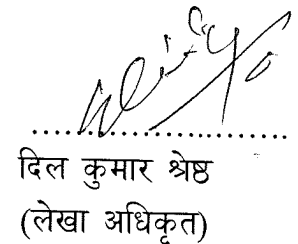 दिल कुमार श्रेष्ठ
(लेखा अधिकृत)